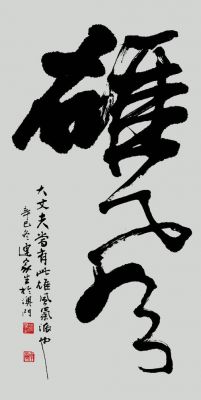 雄風
大丈夫當有此雄風氣派也
辛巳冬連家生於澳門